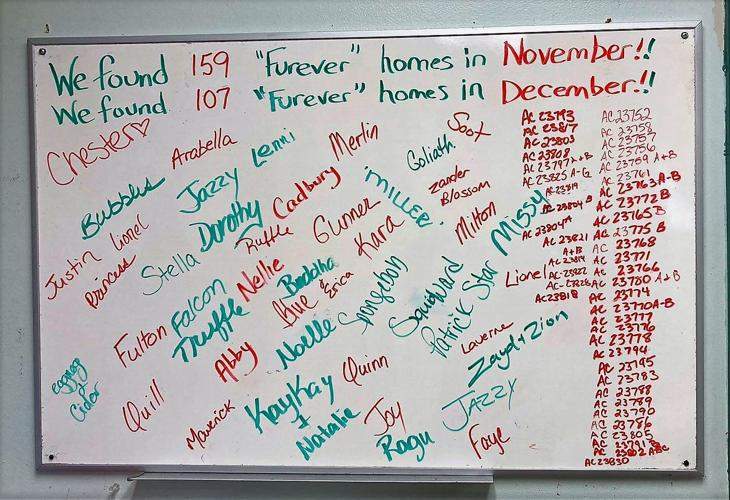 We found 159 "Furever" homes in November!!
We found 107 "Furever" homes in December!!
Chester♡
Arabella
Lenni
Merlin
Goliath
Soox
Bubbles
Jazzy
Dorothy
Cadbury
MILLER
Zander
Blossom
Justin
Lionel
Princess
Stella
Ruffle
Gunner
Kara
Milton
Missy
Falcon
Truffle
Nellie
Buddha
Blue & Erica
Spongebob
Squidward
Patrick Star
Lionel
Fulton
Abby
Noelle
Laverne
Zayd + Zion
eggnog & Cider
Quill
Maverick
KayKay + Natalie
Quinn
Joy
Ragu
JAZZY
Faye
AC 23793
AC 23817
AC 23803
AC 23808
AC 23797 A+B
AC 23825 A-G
AC 23804 A
AC 23821 A+B
AC 23818
AC 23752
AC 23758
AC 23757
AC 23756
AC 23759 A+B
AC 23761
AC 23763 A-B
AC 23772 B
AC 23765 B
AC 23775 B
AC 23768
AC 23771
AC 23766
AC 23780 A+B
AC 23774
AC 23770 A-B
AC 23777
AC 23776
AC 23778
AC 23794
AC 23795
AC 23783
AC 23788
AC 23789
AC 23790
AC 23786
AC 23805
AC 23791 B
AC 23802 ABC
AC 23830